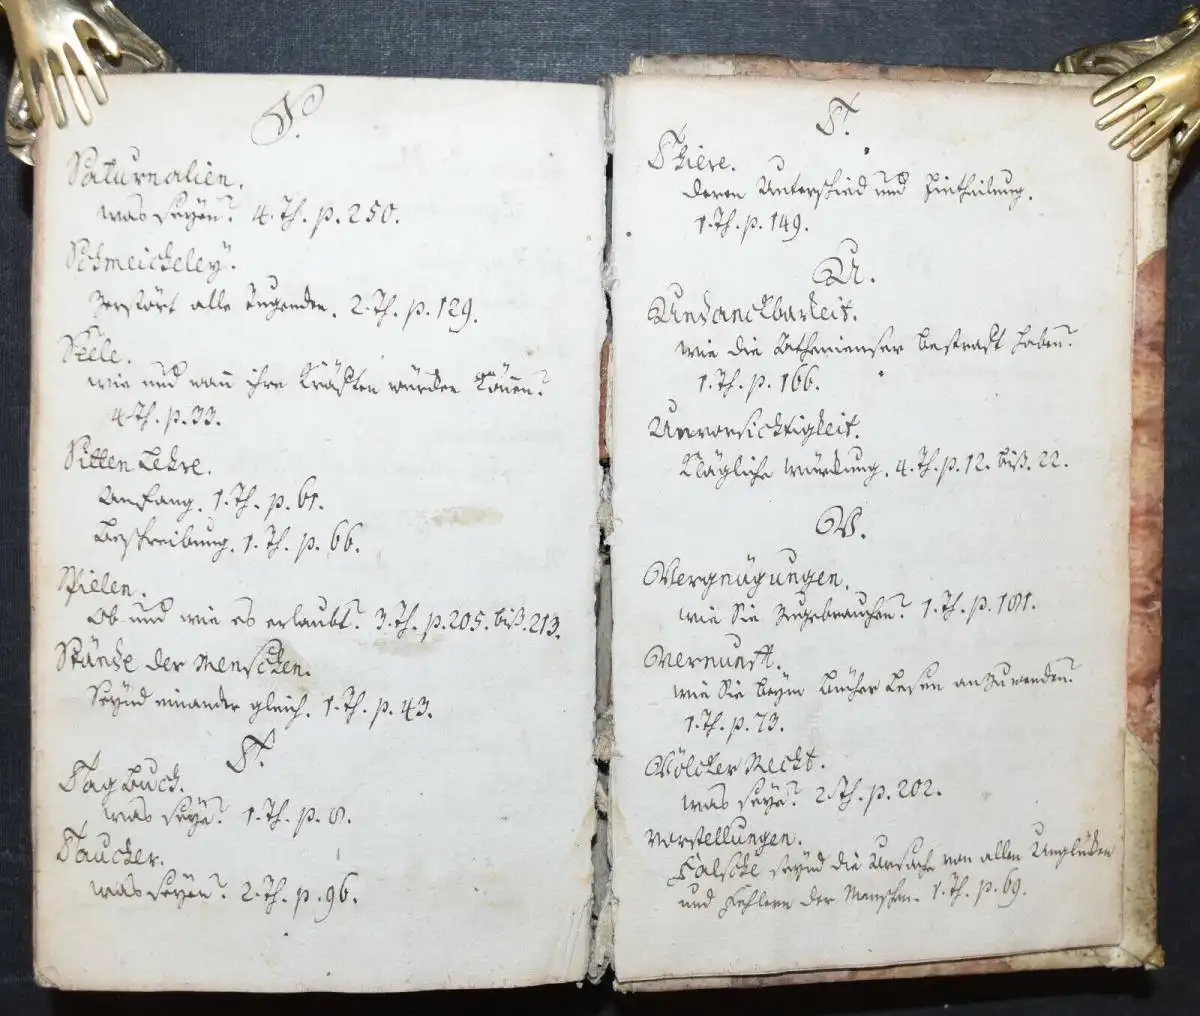 S.
Saturnalien.
was seyen? 4. Th. p. 250.
Schmeicheleÿ.
Zerstört alle Tugenden. 2. Th. p. 129.
Seele.
wie und wañ ihre Kräfften würden können?
4. Th. p. 33.
Sitten Lehre.
Anfang. 1. Th. p. 61.
Beschreibung. 1. Th. p. 66.
Spielen.
Ob und wie es erlaubt? 3. Th. p. 205. biß 213.
Stände der Menschen.
Seynd einander gleich. 1. Th. p. 43.
T.
Tag Buch.
was seye? 1. Th. p. 8.
Taucher.
was seyen? 2. Th. p. 96.
T.
Thiere.
deren Unterschied und Eintheilung.
1. Th. p. 149.
U.
Undanckbarkeit.
wie die Athenienser bestrafft haben?
1. Th. p. 166.
Unvorsichtigkeit.
Klägliche würckung. 4. Th. p. 12. biß. 22.
V.
Vergnügungen.
wie Sie Zugebrauchen? 1. Th. p. 181.
Vernunfft.
wie Sie beym Bücher Lesen anZuwenden?
1. Th. p. 73.
Völcker Recht.
was seye? 2. Th. p. 202.
Vorstellungen.
Falsche seynd die Ursache von allen Unglücken
und Fehlern der Menschen. 1. Th. p. 69.